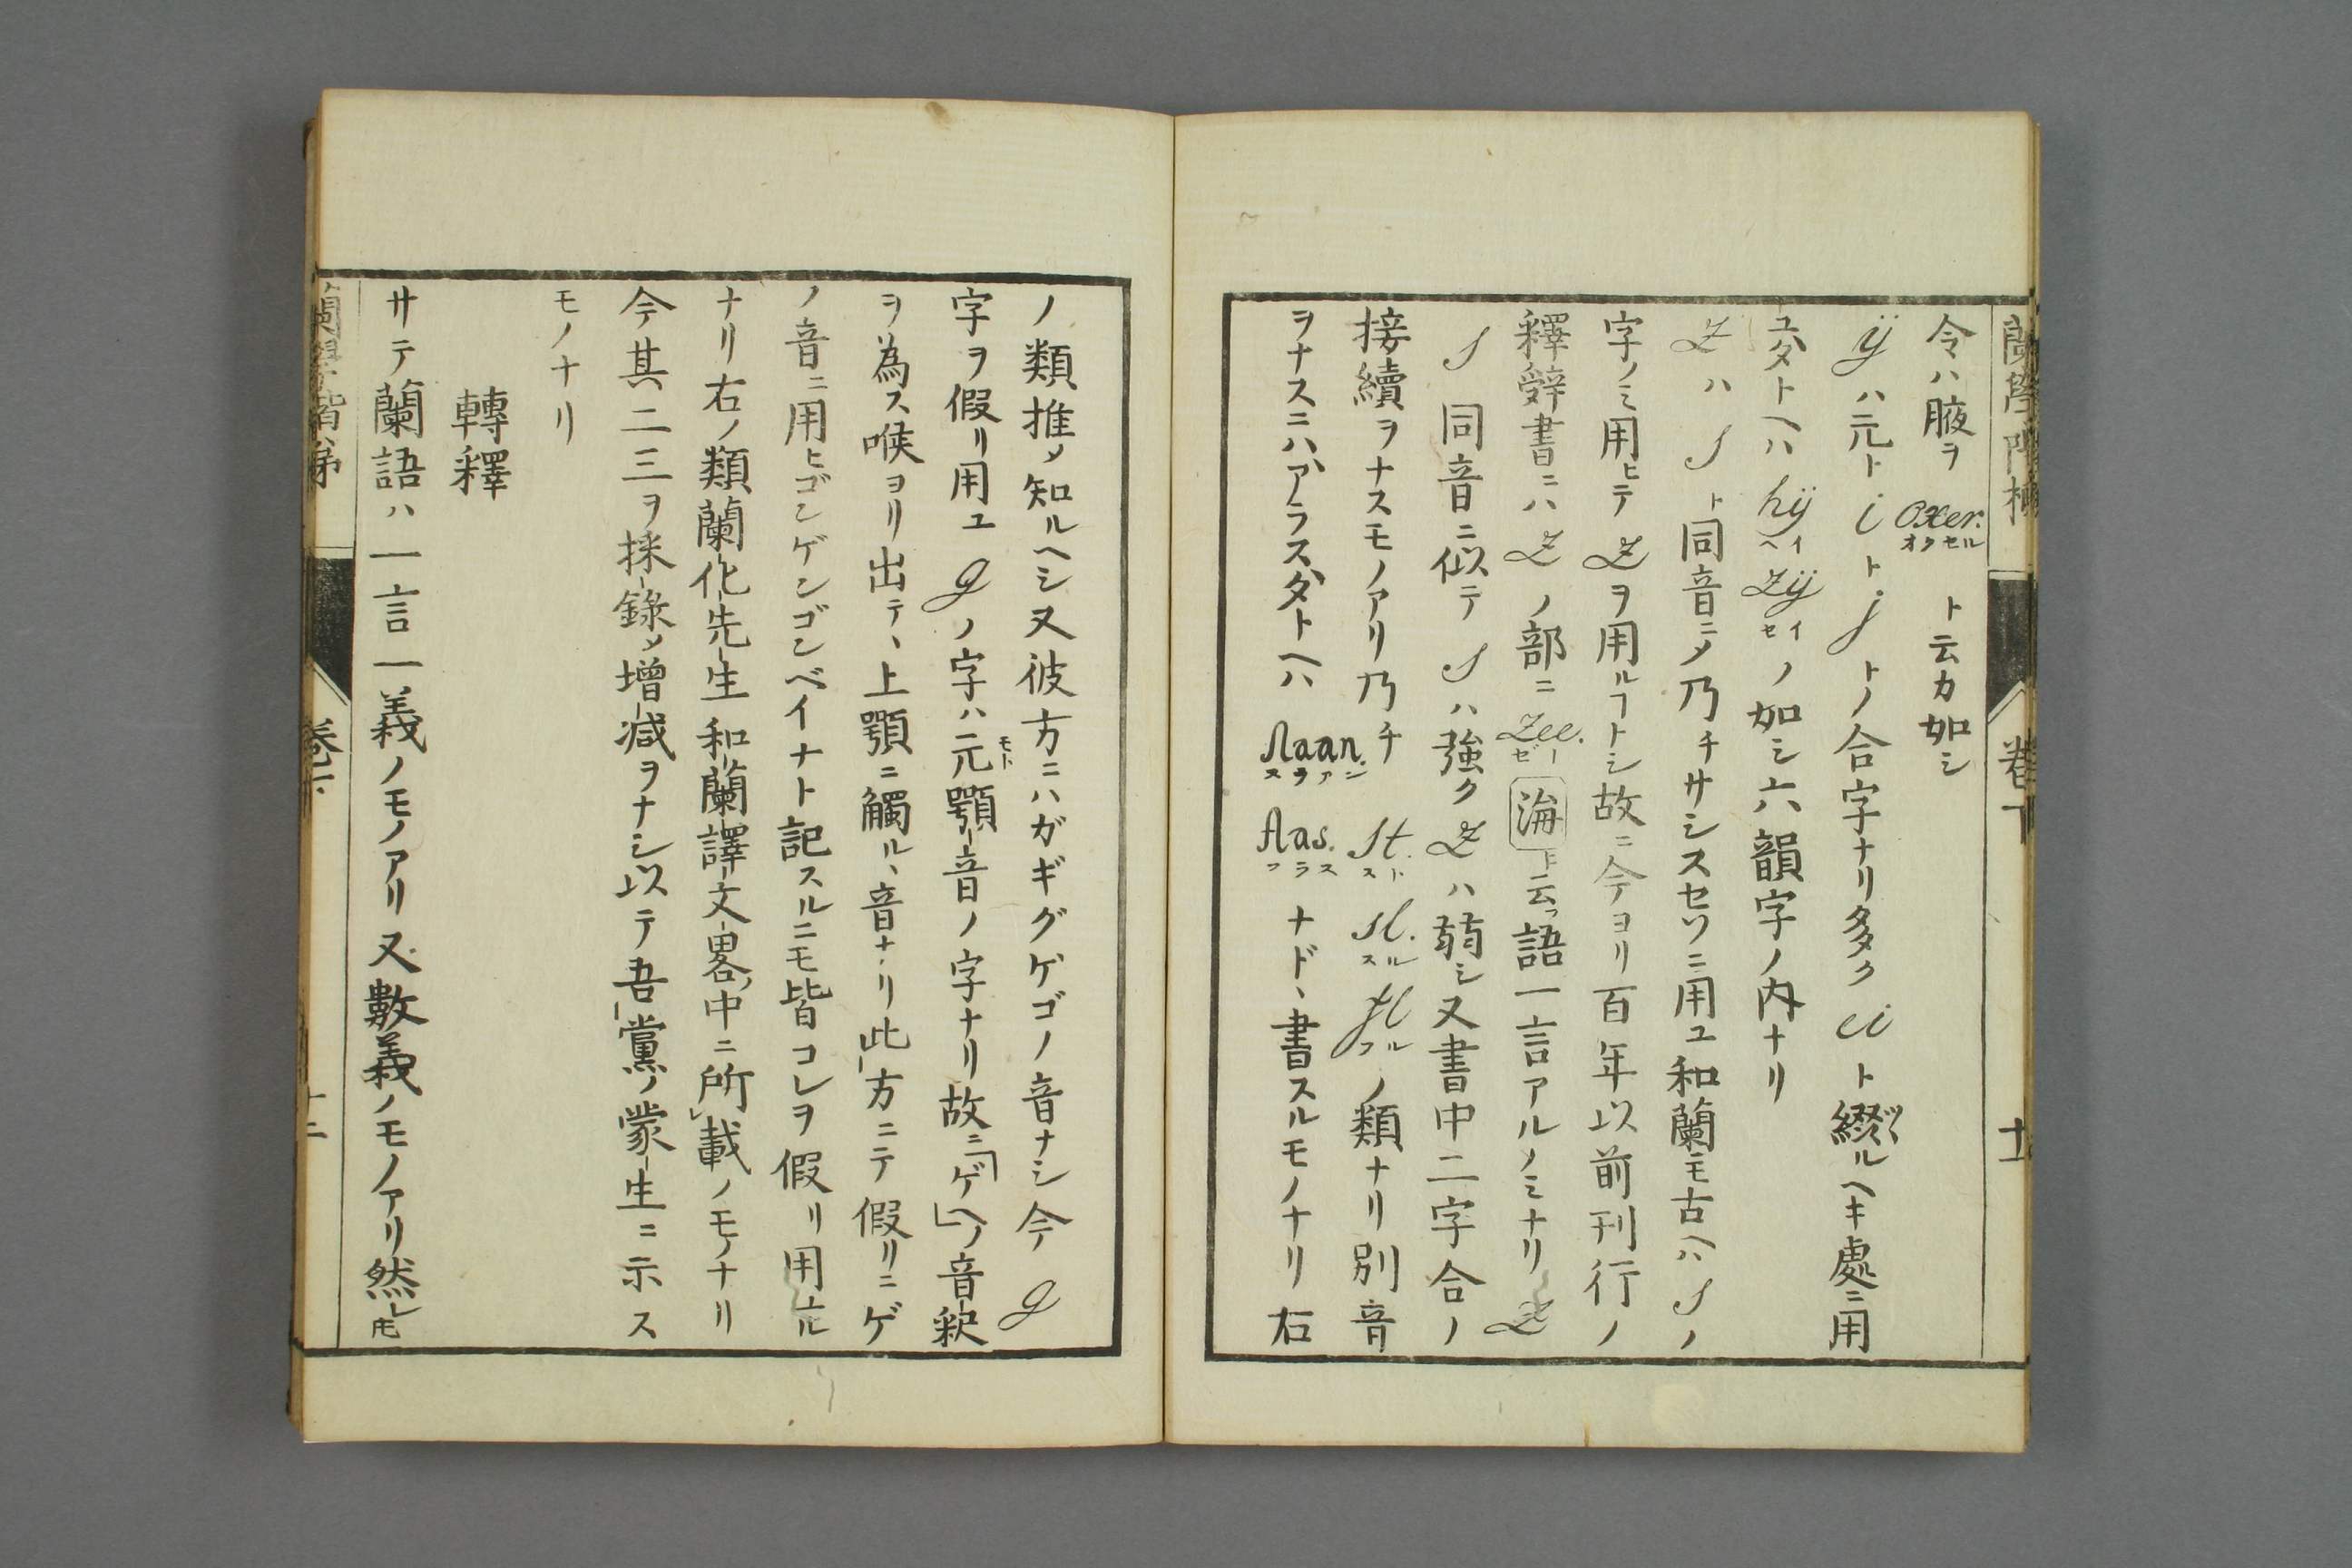 蘭學階梯 卷下 十一
令ハ腋ヲ Oxer. オクセル ト云カ如シ
ÿ ハ元ト i ト j トノ合字ナリ多ク ei ト綴ツヅルヘキ處ニ用
ユタトヘハ hÿ ヘイ zÿ セイ ノ如シ六韻字ノ内ナリ
z ハ ſ ト同音ニメ乃チサシスセソニ用ユ和蘭モ古ヘハ ſ ノ
字ノミ用ヒテ z ヲ用ルヿトシ故ニ今ヨリ百年以前刊行ノ
釋辭書ニハ z ノ部ニ zee. ゼー 海 ト云フ語一言アルノミナリ z
ſ 同音ニ似テ ſ ハ強ク z ハ弱シ又書中二字合ノ
接續ヲナスモノアリ乃チ ſt. スト ſl. スル fl フル ノ類ナリ別音
ヲナスニハアラスタトヘハ ſlaan. スラアン flas. フラス ナド、書スルモノナリ右
ノ類推メ知ルヘシ又彼方ニハガギグゲゴノ音ナシ今 g
字ヲ假リ用ユ g ノ字ハ元モト顎音ノ字ナリ故ニ「ゲ」ヘノ音釈
ヲ為ス喉ヨリ出テ、上顎ニ觸ル、音ナリ此方ニテ假リニゲ
ノ音ニ用ヒゴンゲンゴンベイナト記スルニモ皆コレヲ假リ用ル
ナリ右ノ類蘭化先生和蘭譯文畧中ニ所載ノモノナリ
今其二三ヲ採錄メ増減ヲナシ以テ吾黨ノ蒙生ニ示ス
モノナリ
轉釋
サテ蘭語ハ一言一義ノモノアリ又數義ノモノアリ然レ𪜈
蘭學階梯 卷下 十二